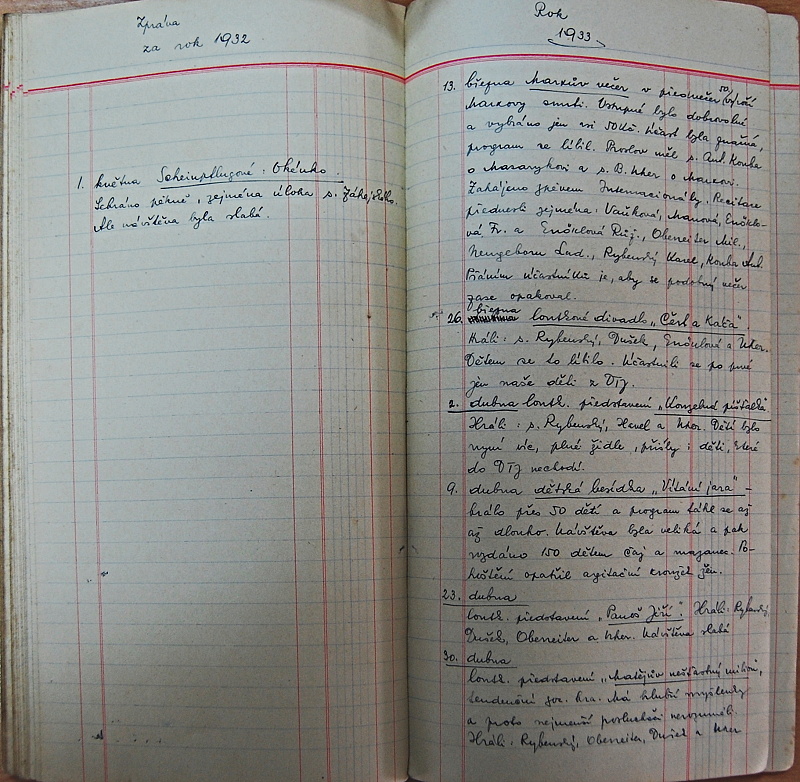 Zpráva
za rok 1932
1. května Scheinpflugové: Okénko.
Sehráno pěkně, zejména úloha s.
Ale návštěva byla slabá.
Rok
1933
13. března Marxův večer v předvečer 50
Marxovy smrti. Vstupné bylo dobrovolné
a vybráno jen asi 50Kč. Účast byla značná,
program se líbil. Proslov měl s. Ant. Kouba
o Masarykovi a s. B. Uher o Marxovi.
Zahájeno zpěvem Internacionály. Recitace
přednesli zejména: Vaňková, Manová,
vá Fr. a Růž., Oberreiter Mil.,
Neugeborn Lad., Rybenský Karel, Kouba Ant.
Přáním účastníků je, aby se podobný večer
zase opakoval.
března
26. loutkové divadlo "Čert a Káča"
Hráli: s. Rybenský, Dušek, a Uher.
Dětem se to líbilo. Účastnili se po prvé
jen naše děti z DTJ.
2. dubna loutk. představení "Kouzelná píšťalka"
Hráli: s. Rybenský, Havel a Uher. Dětí bylo
nyní víc, plné židle, přišly i děti, které
do DTJ nechodí.
9. dubna dětská besídka "Vítání jara" -
hrálo přes 50 dětí a program táhl se až
až dlouho. Návštěva byla veliká a pak
rozdáno 150 dětem čaj a mazanec. Po-
hoštění opatřil agitační kroužek žen.
23. dubna
loutk. představení "Panoš Jiří". Hráli: Rybenský,
Dušek, Oberreiter a Uher. Návštěva slabá
30. dubna
loutk. představení "Matějův nešťastný milion,
tendenční soc. hra. Má hlubší myšlenky
a proto nejmenší posluchači nerozuměli.
Hráli: Rybenský, Oberreiter, Dušek a Uher